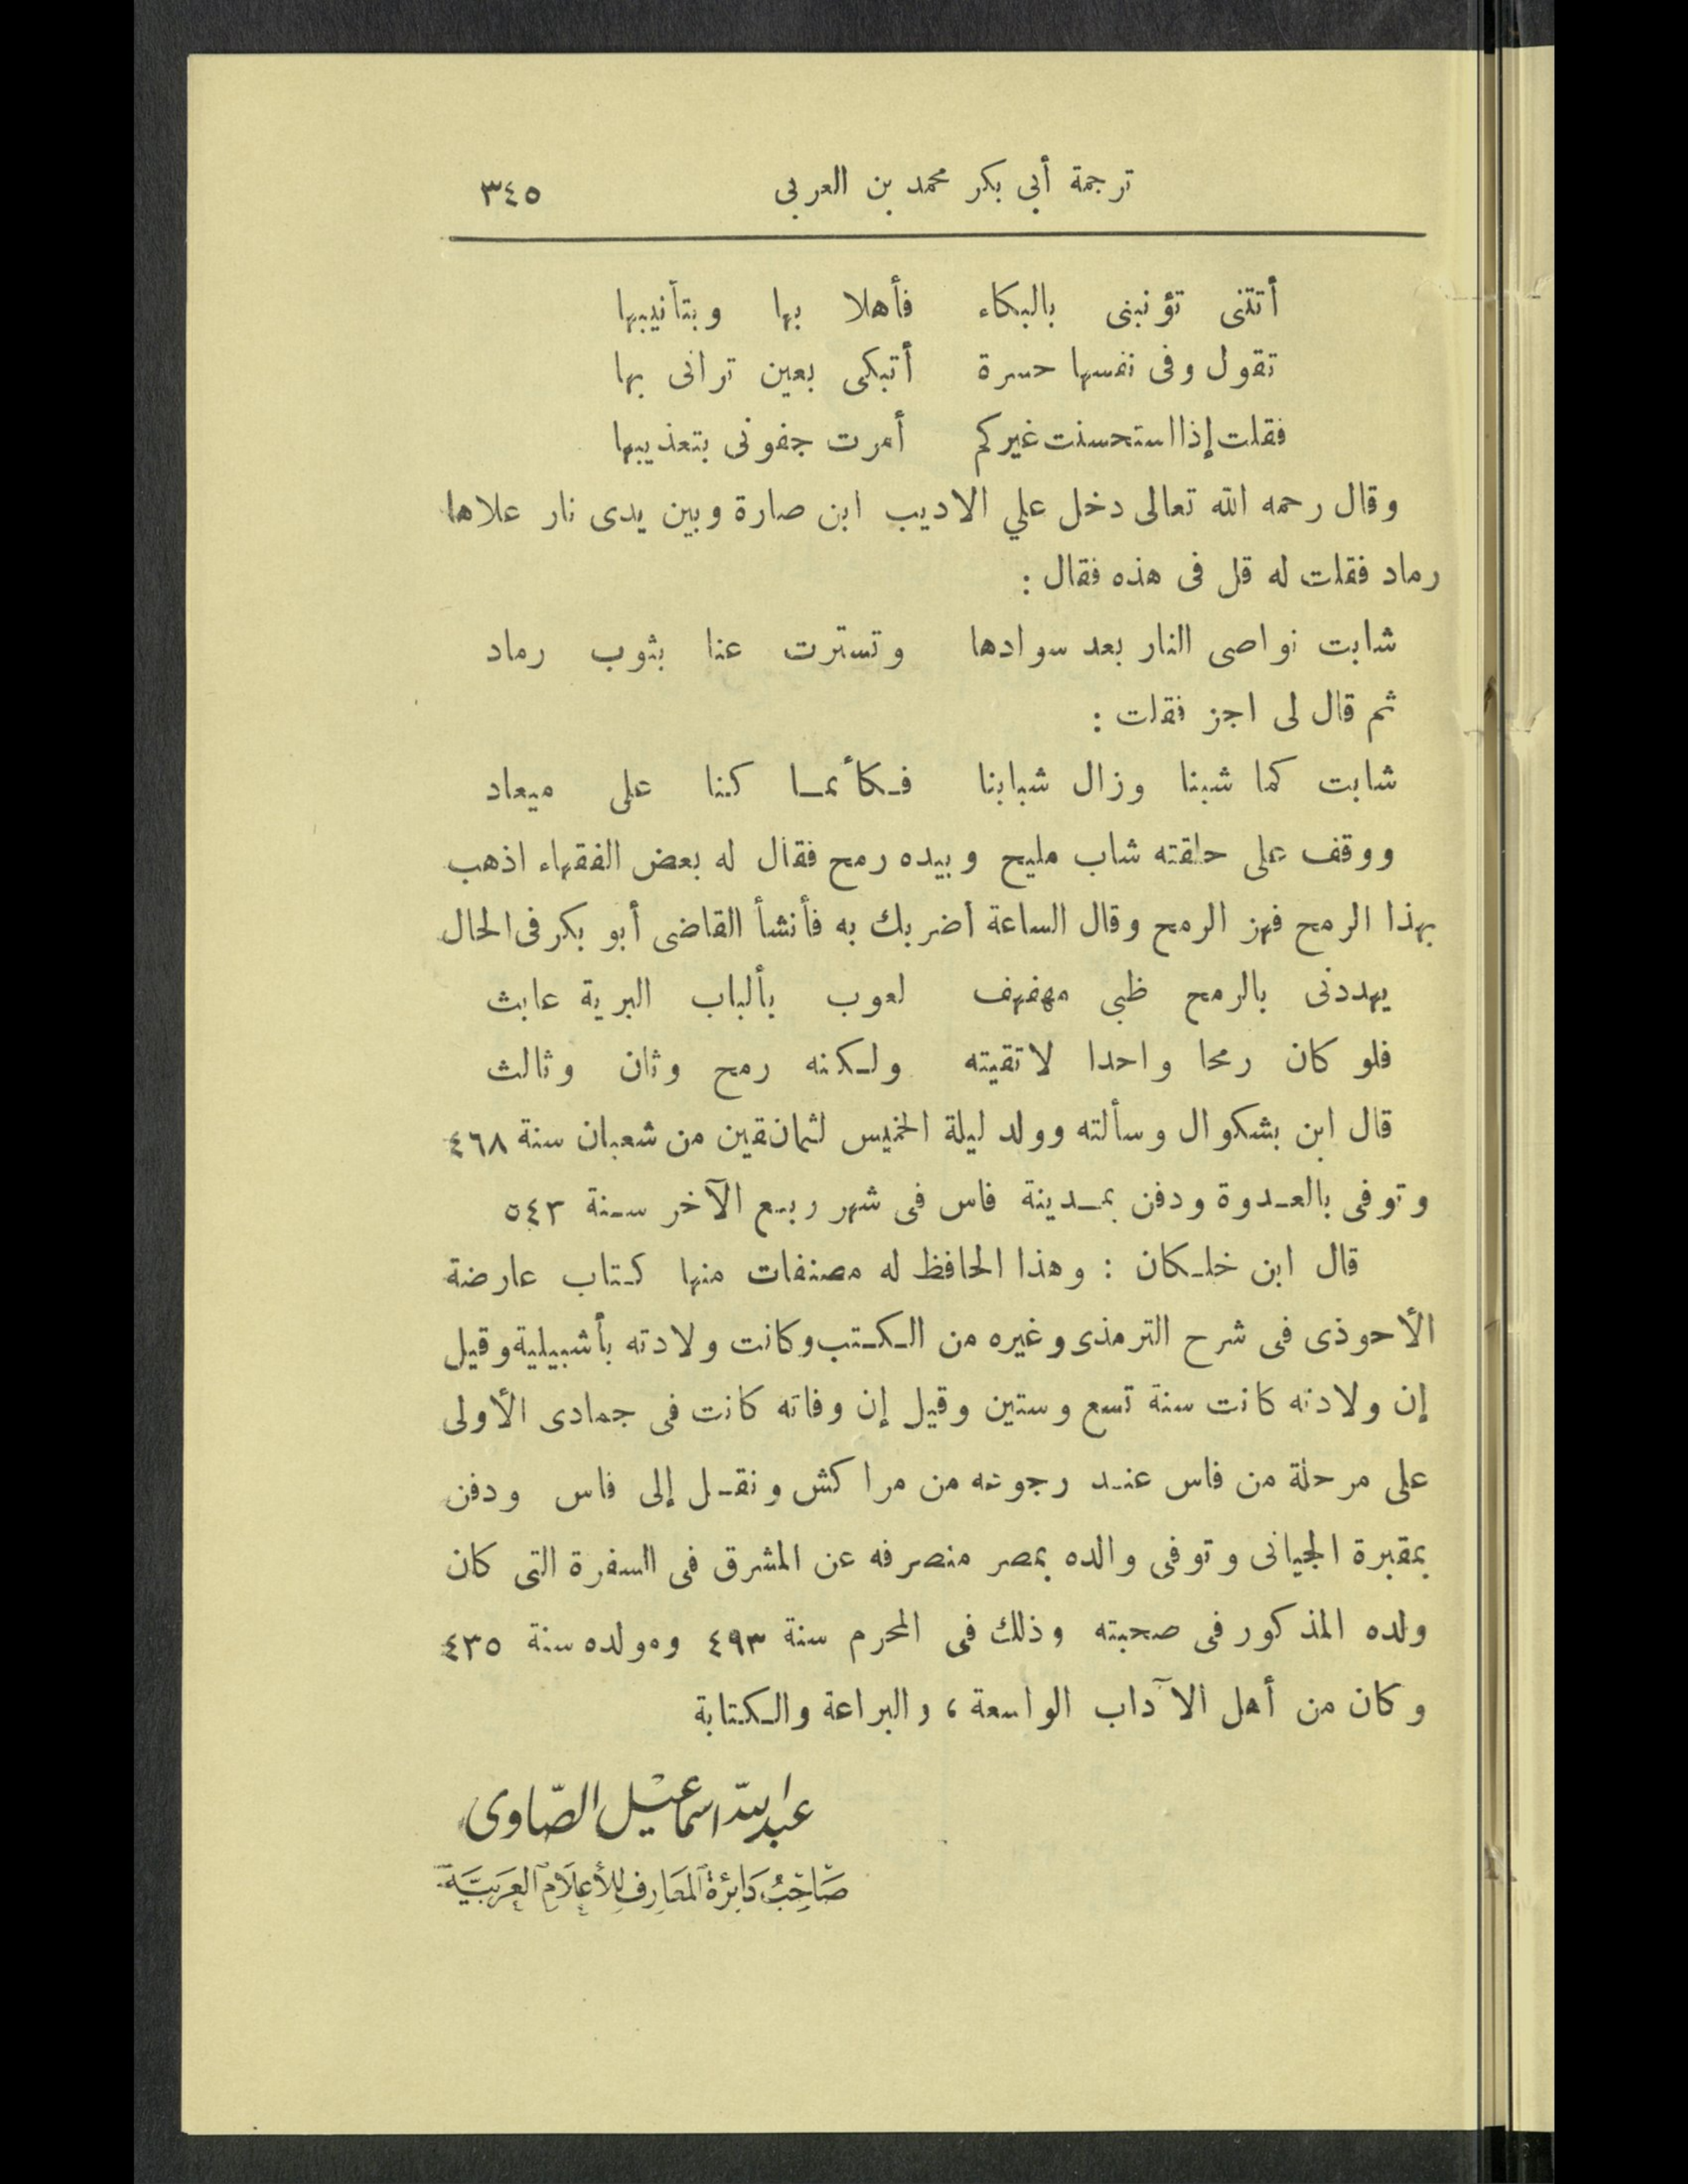 ترجمة أبي بكر محمد بن العربى ٣٤٥
أتتنى تؤنبنى بالبكاء فأهلا بها وبتأنيبها
تقول وفى نفسها حسرة أتبكى بعين ترانى بها
فقلت إذا استحسنت غيركم أمرت جفونى بتعذيبها
وقال رحمه الله تعالى دخل علي الاديب ابن صارة وبين يدى نار علاها
رماد فقلت له قل فى هذه فقال :
شابت نواصى النار بعد سوادها وتسترت عنا بثوب رماد
ثم قال لى اجز فقلت :
شابت كما شبنا وزال شبابنا فكأنما كنا على ميعاد
ووقف على حلقته شاب مليح وبيده رمح فقال له بعض الفقهاء اذهب
بهذا الرمح فهز الرمح وقال الساعة أضربك به فأنشأ القاضى أبو بكر فى الحال
يهددنى بالرمح ظبى مهفهف لعوب بألباب البرية عابث
فلو كان رمحا واحدا لاتقيته ولكنه رمح وثان وثالث
قال ابن بشكوال وسألته وولد ليلة الخميس لثمان بقين من شعبان سنة ٤٦٨
وتوفى بالعدوة ودفن بمدينة فاس فى شهر ربيع الآخر سنة ٥٤٣
قال ابن خلكان : وهذا الحافظ له مصنفات منها كتاب عارضة
الأحوذى فى شرح الترمذى وغيره من الكتب وكانت ولادته بأشبيلية وقيل
إن ولادته كانت سنة تسع وستين وقيل إن وفاته كانت فى جمادى الأولى
على مرحلة من فاس عند رجوعه من مراكش ونقل إلى فاس ودفن
بمقبرة الجيانى وتوفى والده بمصر منصرفه عن المشرق فى السفرة التى كان
ولده المذكور فى صحبته وذلك فى المحرم سنة ٤٩٣ ومولده سنة ٤٣٥
وكان من أهل الآداب الواسعة ، والبراعة والكتابة
عبد الله اسماعيل الصّاوى
صَاحِبُ دَائِرَة المَعَارِف للأَعلَام العَرَبيَّة